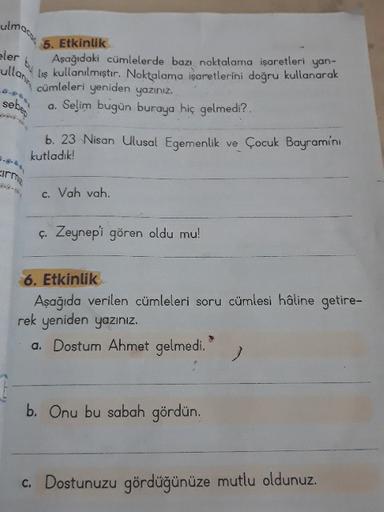 5. Etkinlik
Aşağıdaki cümlelerde bazı noktalama işaretleri yan-
lış kullanılmıştır. Noktalama işaretlerini doğru kullanarak
cümleleri yeniden yazınız.
a. Selim bugün buraya hiç gelmedi?.
b. 23 Nisan Ulusal Egemenlik ve Çocuk Bayramı'nı
kutladık!
c. Vah vah.
ç. Zeynep'i gören oldu mu!
6. Etkinlik
Aşağıda verilen cümleleri soru cümlesi hâline getire-
rek yeniden yazınız.
a. Dostum Ahmet gelmedi.
b. Onu bu sabah gördün.
c. Dostunuzu gördüğünüze mutlu oldunuz.